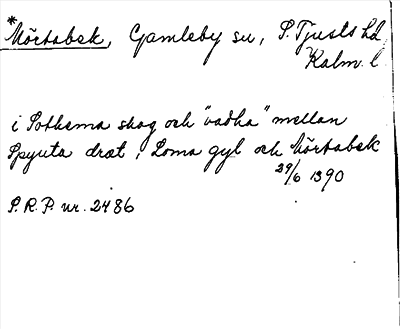 *Mörtabek, Gamleby sn, S. Tjusts hd
Kalm. l.
i Sothema skog och "vadha" mellan
Spyuta dræt, Loma gyl och Mörtabek
29/6 1390
S.R.P. nr. 2486